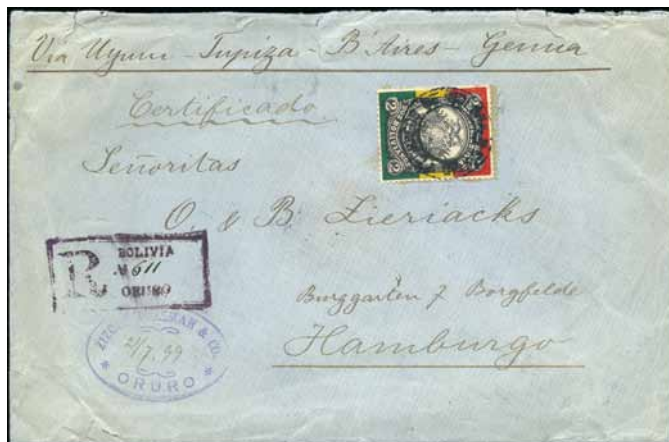 Via Uyuni - Tupiza - B'Aires - Genua
Certificado
Señoritas
O. & B. Zieriacks
BOLIVIA
R No 611
ORURO
Burggarten 7 Borgfelde
Hamburgo
& CO.
21/7.99
ORURO
2
2